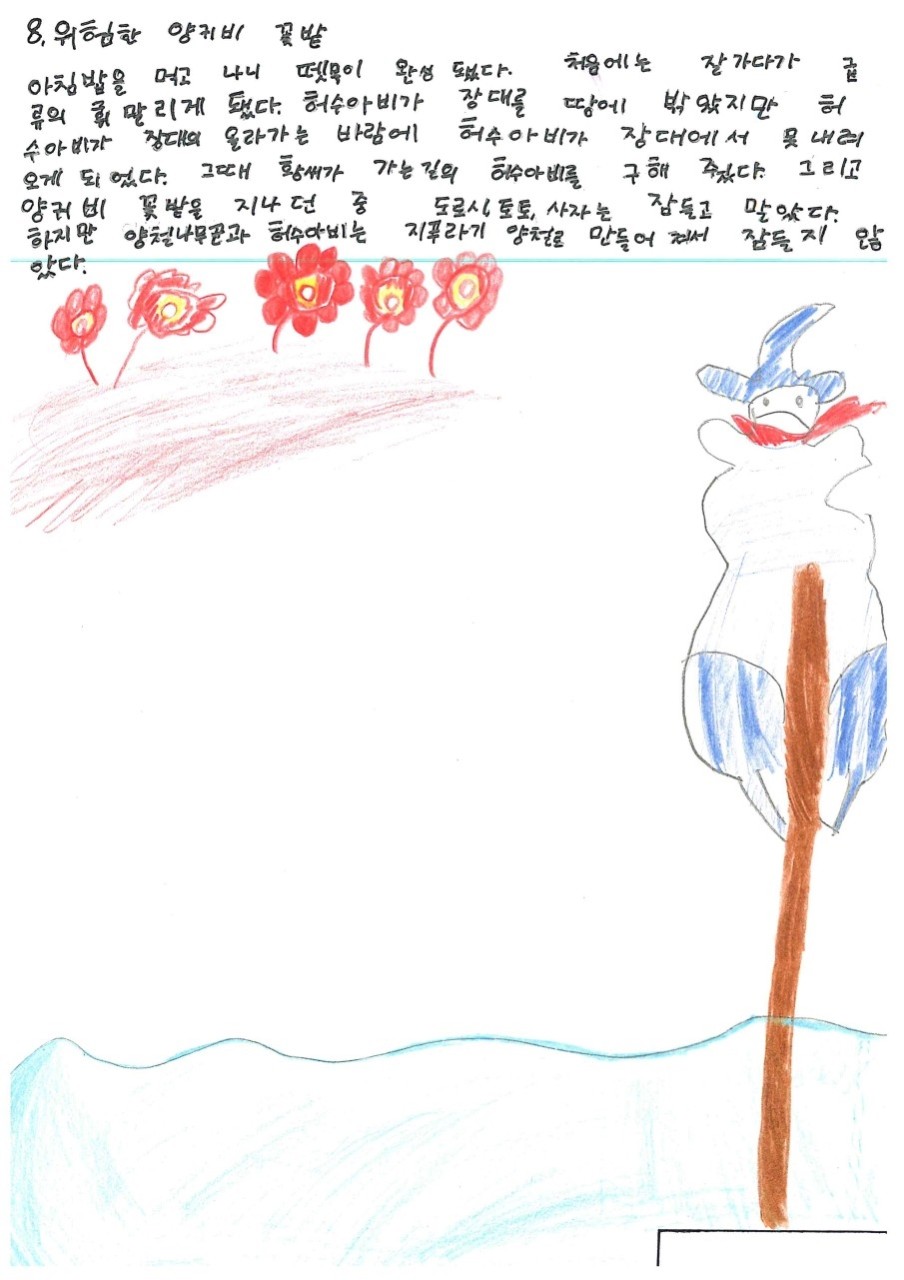 8.위험한 양귀비 꽃밭
아침밥을 먹고 나니 뗏목이 완성 됐다. 처음에는 잘 가다가 급
류의 휡말리게 됐다. 허수아비가 장대를 땅에 밖았지만 허
수아비가 장대의 올라가는 바람에 허수아비가 장대에서 못 내려
오게 되었다. 그때 황새가 가는길의 허수아비를 구해 주었다. 그리고
양귀비 꽃밭을 지나던 중 도로시, 토토, 사자는 잠들고 말았다.
하지만 양철나무꾼과 허수아비는 지푸라기 양철로 만들어 져서 잠들지 않
았다.